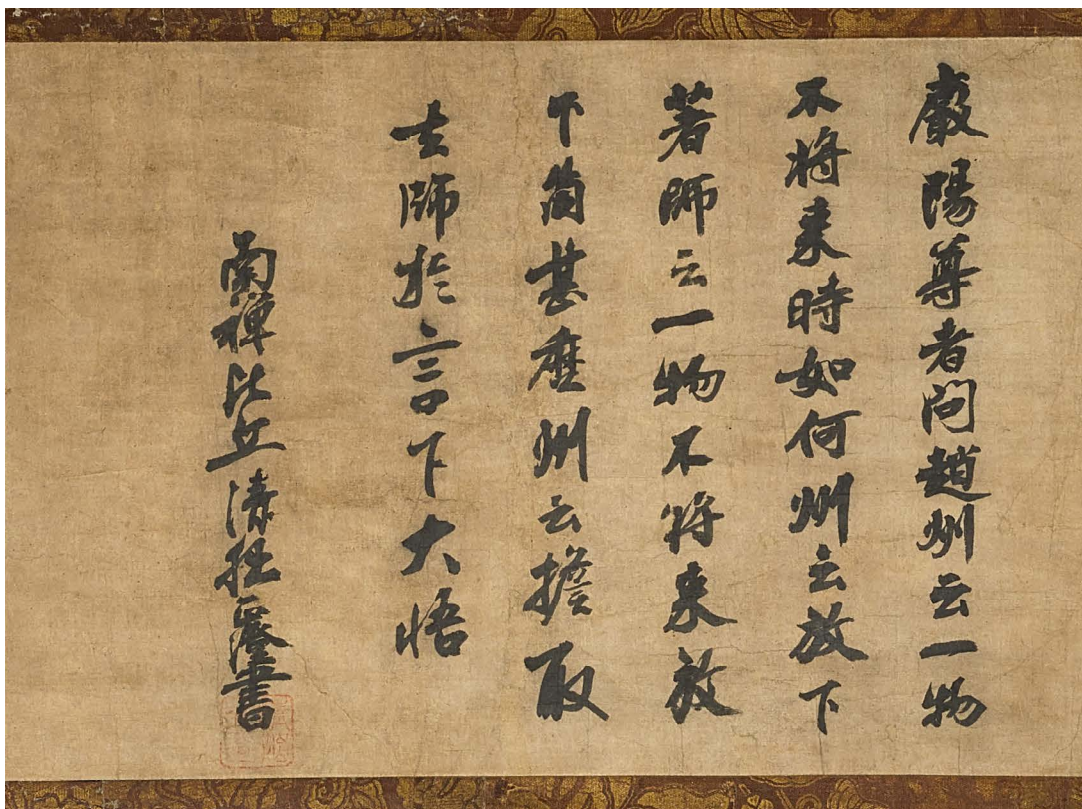 嚴陽尊者問趙州云一物
不将来時如何州云放下
著師云一物不将来放
下箇甚麼州云擔取
去師於言下大悟
南禅比丘清拙澄書